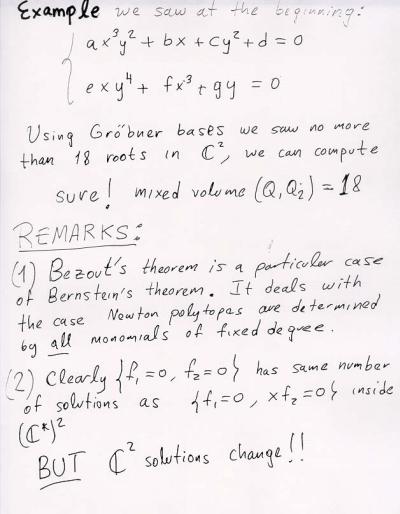 Example we saw at the beginning:
ax³y² + bx + cy² + d = 0
exy⁴ + fx³ + gy = 0
Using Gröbner bases we saw no more
than 18 roots in ℂ², we can compute
sure! mixed volume (Q, Q₂) = 18
REMARKS:
(1) Bezout's theorem is a particular case
of Bernstein's theorem. It deals with
the case Newton polytopes are determined
by all monomials of fixed degree.
(2) Clearly {f₁=0, f₂=0} has same number
of solutions as {f₁=0, xf₂=0} inside
(ℂ*)²
BUT ℂ² solutions change!!